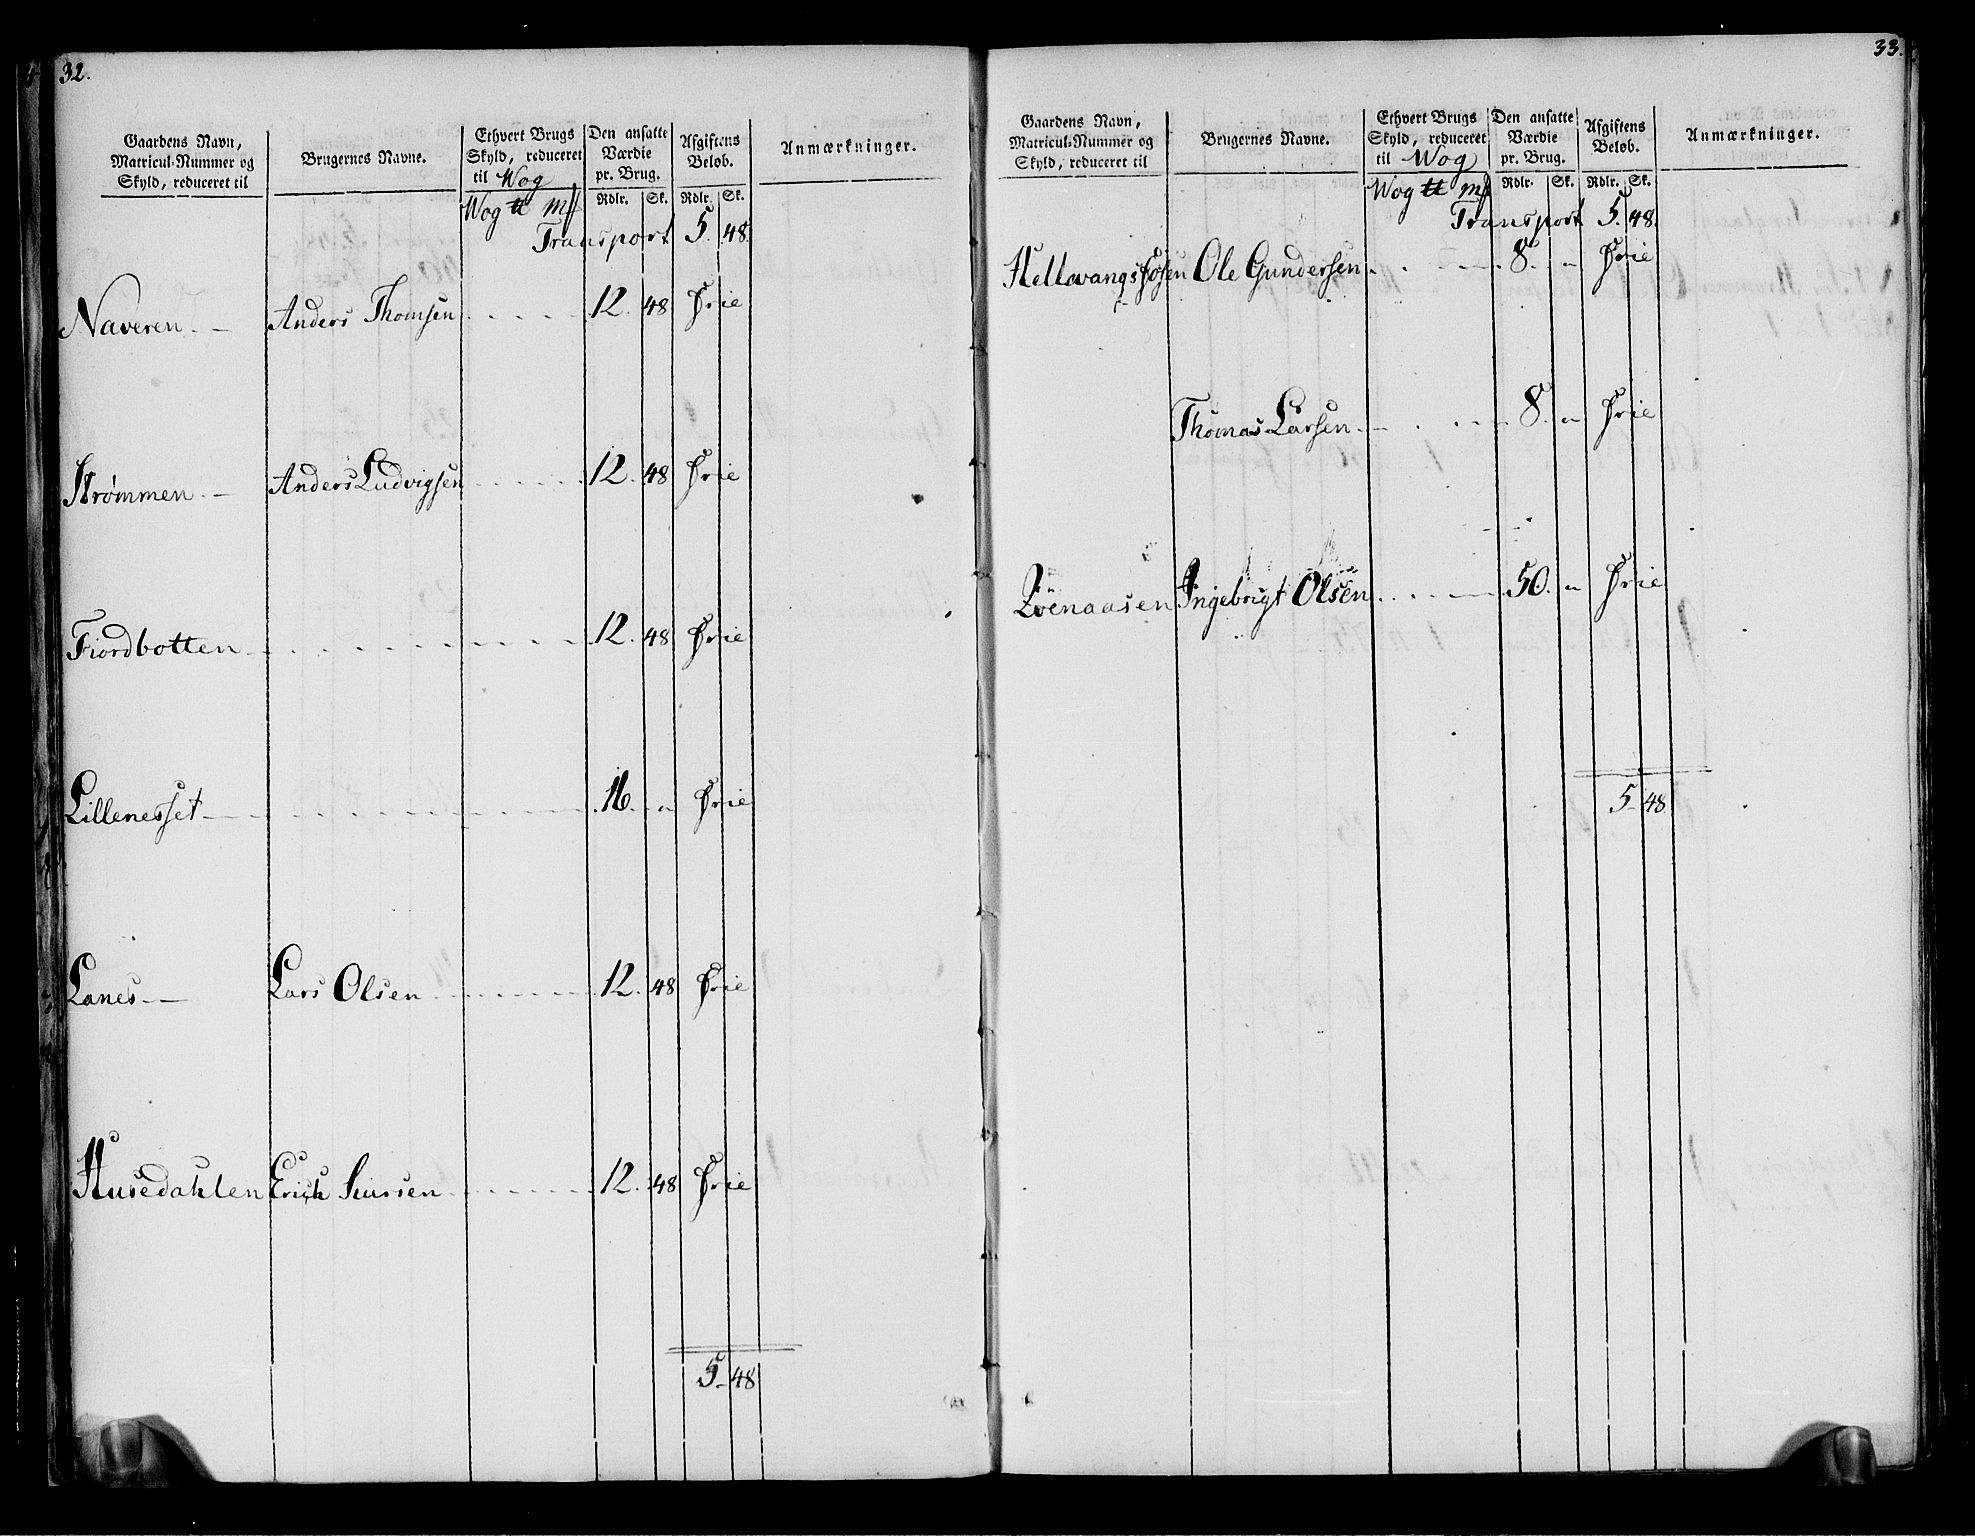 32.
Gaardens Navn, Matricul-Nummer og Skyld, reduceret til | Brugernes Navne. | Ethvert Brugs Skyld, reduceret til Wog | Den ansatte Værdie pr. Brug. | Afgiftens Beløb. | Anmærkninger.
Wog ℔ mſ | Rdlr. Sk. | Rdlr. Sk.
Transport 5. 48.
Naveren Anders Thomsen 12. 48 Frie
Strømmen Anders Ludvigsen 12. 48 Frie
Fiordbotten 12. 48 Frie
Lillenesset 16. " Frie
Lanes Lars Olsen 12. 48 Frie
Husedahlen Erich Siursen 12. 48 Frie
5 48
33.
Gaardens Navn, Matricul-Nummer og Skyld, reduceret til | Brugernes Navne. | Ethvert Brugs Skyld, reduceret til Wog | Den ansatte Værdie pr. Brug. | Afgiftens Beløb. | Anmærkninger.
Wog ℔ mſ | Rdlr. Sk. | Rdlr. Sk.
Transport 5. 48.
Ole Gundersen 8. " Frie
Thomas Larsen 8. " Frie
Ingebrigt Olsen 50. " Frie
5 48